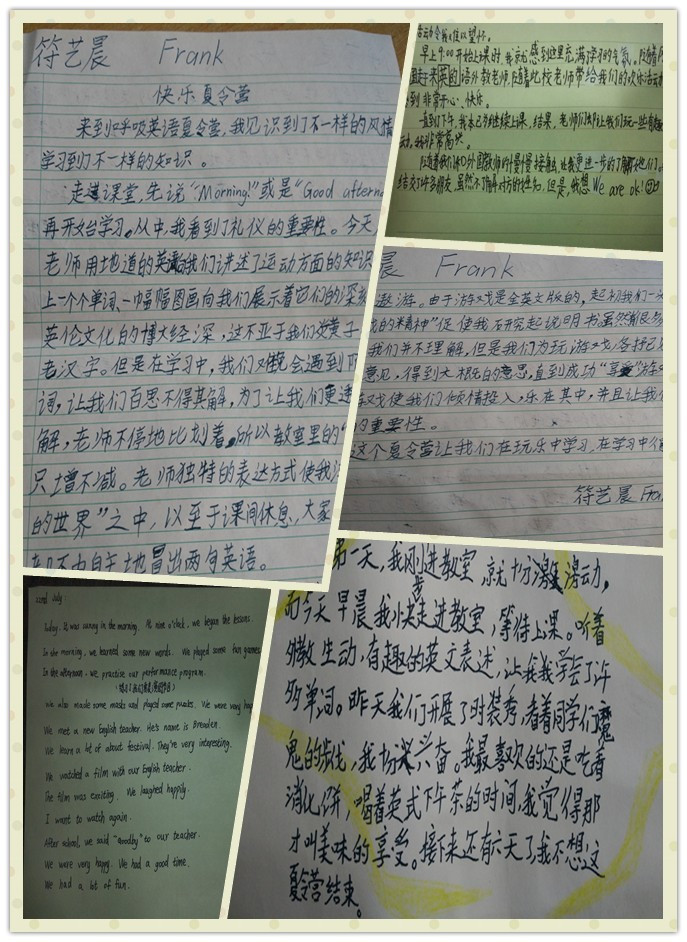 符艺晨 Frank
快乐夏令营
来到呼吸英语夏令营,我见识到了不一样的风情
学习到了不一样的知识。
走进课堂,先说“Morning!”或是“Good afterno
再开始学习。从中,我看到了礼仪的重要性。今天,
老师用地道的英 我们讲述了运动方面的知识
上一个个单词、一幅幅图画向我们展示着它们的深
英伦文化的博大经深,这不亚于我们 黄子
老汉字。但是在学习中,我们 会遇到
词,让我们百思不得其解,为了让我们更
解,老师不停地比划着,所以教室里的“
只增不减。老师独特的表达方式使我
的世界”之中,以至于课间休息,大家
都不由自主地冒出两句英语。
活动令我难以忘怀。
早上9:00开始上课时,我就感到这里充满了学习的气氛。随着
来英的语外教老师,随着此校老师带给我们的欢乐活动
到非常开心、快乐。
直到下午,我本已为继续上课,结果,老师们却让我们玩一些有趣
动,我非常高兴。
随着我们和外国教师的慢慢接触,让我更进一步的了解他们。
结交了许多朋友,虽然不了解对方的性知,但是,我想We are ok!
晨 Frank
遨游。由于游戏是全英文版的,起初我们一头
的精神”促使我研究起说明书,虽然很多
我们并不理解,但是我们为玩游戏,各抒己
意见,得到大概的意思,直到成功“享受”游戏
戏使我们倾情投入,乐在其中,并且让我
的重要性。
这个夏令营让我们在玩乐中学习,在学习中
符艺晨 Fra
22nd July
Today, It was sunny in the morning. At nine o'clock, we began the lessons.
In the morning, we learned some new words. We played some fun games
In the afternoon, we practise our performance program.
We also made some masks and played some puzzles. We were very hap
We met a new English teacher. He's name is Brenden.
We learn a lot of about festival. They're very interesting.
We watched a film with our English teacher.
The film was exciting. We laughed happily.
I want to watch again.
After school, we said "Goodby" to our teacher.
We were very happy. We had a good time.
We had a lot of fun.
第一天,我刚步进教室,就十分激动,
而今天早晨我小快走进教室,等待上课。听着
外教生动,有趣的英文表述,让我学会了许
多单词。昨天我们开展了时装秀,看着同学们魔
鬼的步伐,我十分兴奋。我最喜欢的还是吃着
消化饼,喝着英式下午茶的时间,我觉得那
才叫美味的享受。接下来还有六天了,我不想这
夏令营结束。